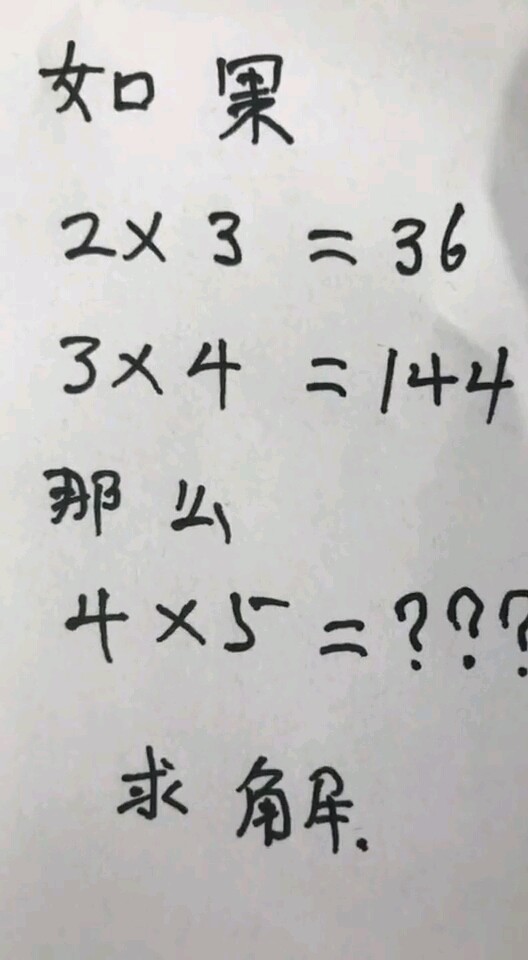 如果
2×3=36
3×4=144
那么
4×5=???
求解.